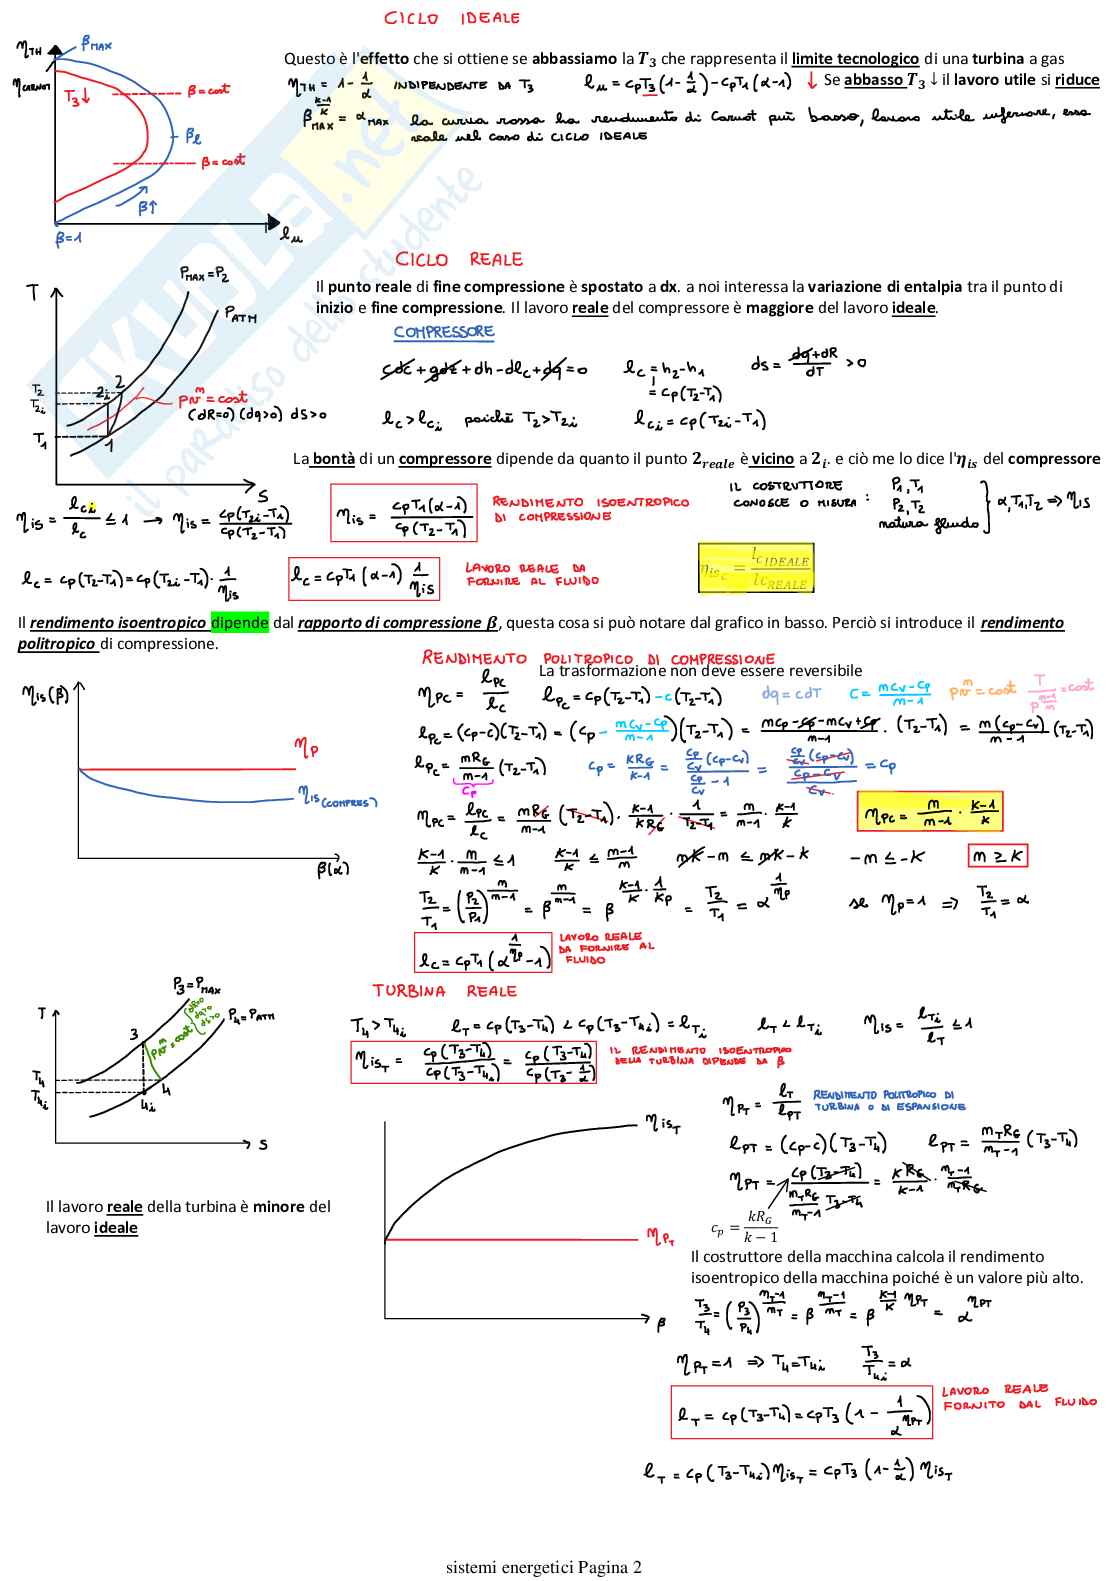 CICLO IDEALE
η_TH
β_MAX
η_CARNOT
T₃↓
β=cost
β_l
β=cost
β↑
β=1
l_u
Questo è l'effetto che si ottiene se abbassiamo la T₃ che rappresenta il limite tecnologico di una turbina a gas
η_TH = 1 - 1/α INDIPENDENTE DA T₃ l_u = cpT₃(1-1/α) - cpT₁(α-1) ↓ Se abbasso T₃ ↓ il lavoro utile si riduce
β_MAX^((k-1)/k) = α_MAX la curva rossa ha rendimento di Carnot più basso, lavoro utile inferiore, essa
vale nel caso di CICLO IDEALE
CICLO REALE
Il punto reale di fine compressione è spostato a dx. a noi interessa la variazione di entalpia tra il punto di
inizio e fine compressione. Il lavoro reale del compressore è maggiore del lavoro ideale.
T
P_MAX=P₂
P_ATM
T₂
T₂i
T₁
2
2i
1
pv^m=cost
(dR=0) (dq>0) dS>0
S
COMPRESSORE
cdc+gdz+dh-dl_c+dq=0 l_c=h₂-h₁ ds= (dq+dR)/dT >0
=cp(T₂-T₁)
l_c>l_ci poiché T₂>T₂i l_ci=cp(T₂i-T₁)
La bontà di un compressore dipende da quanto il punto 2_reale è vicino a 2_i. e ciò me lo dice l'η_is del compressore
η_is = l_ci/l_c ≤1 → η_is = cp(T₂i-T₁)/cp(T₂-T₁)
η_is = cpT₁(α-1)/cp(T₂-T₁)
RENDIMENTO ISOENTROPICO
DI COMPRESSIONE
IL COSTRUTTORE
CONOSCE O MISURA :
P₁,T₁
P₂,T₂
natura fluido
} α,T₁,T₂ ⇒ η_IS
l_c = cp(T₂-T₁)=cp(T₂i-T₁)· 1/η_is
l_c=cpT₁(α-1) 1/η_is
LAVORO REALE DA
FORNIRE AL FLUIDO
η_is_c = l_c IDEALE / l_c REALE
Il rendimento isoentropico dipende dal rapporto di compressione β, questa cosa si può notare dal grafico in basso. Perciò si introduce il rendimento
politropico di compressione.
RENDIMENTO POLITROPICO DI COMPRESSIONE
La trasformazione non deve essere reversibile
η_is(β)
η_P
η_is(COMPRES)
β(α)
η_PC = l_PC/l_c l_PC=cp(T₂-T₁)-c(T₂-T₁) dq=cdT c= (mcv-cp)/(m-1) pv^m=cost T/p^((m-1)/m)=cost
l_PC=(cp-c)(T₂-T₁)=(cp- (mcv-cp)/(m-1))(T₂-T₁)= (mcp-cp-mcv+cp)/(m-1) · (T₂-T₁) = m(cp-cv)/(m-1) (T₂-T₁)
l_PC= mR_G/(m-1) (T₂-T₁) cp= kR_G/(k-1) = (cp/cv (cp-cv))/(cp/cv -1) = (cp/cv (cp-cv))/((cp-cv)/cv) =cp
cp
η_PC= l_PC/l_c = mR_G/(m-1) (T₂-T₁)· (k-1)/(kR_G) · 1/(T₂-T₁) = m/(m-1) · (k-1)/k
η_PC= m/(m-1) · (k-1)/k
(k-1)/k · m/(m-1) ≤1 (k-1)/k ≤ (m-1)/m mk-m ≤ mk-k -m≤-k m≥k
T₂/T₁ =(P₂/P₁)^(m/(m-1)) = β^(m/(m-1)) = β^((k-1)/k · 1/kp) = T₂/T₁ = α^(1/ηp) se η_P=1 ⇒ T₂/T₁ =α
l_c=cpT₁(α^(1/ηp)-1)
LAVORO REALE
DA FORNIRE AL
FLUIDO
TURBINA REALE
T
P₃=P_MAX
P₄=P_ATM
pv^m=cost
dR=0
dq>0
ds>0
3
4
4i
T₄
T₄i
S
T₄>T₄i l_T=cp(T₃-T₄)<cp(T₃-T₄i)=l_Ti l_T<l_Ti η_is= l_Ti/l_T ≤1
η_is_T = cp(T₃-T₄)/cp(T₃-T₄i) = cp(T₃-T₄)/cp(T₃-1/α)
IL RENDIMENTO ISOENTROPICO
DELLA TURBINA DIPENDE DA β
η_is_T
η_P_T
β
η_PT= l_T/l_PT
RENDIMENTO POLITROPICO DI
TURBINA O DI ESPANSIONE
l_PT=(cp-c)(T₃-T₄) l_PT= m_T R_G/(m_T-1) (T₃-T₄)
η_PT= cp(T₃-T₄)/(m_T R_G/(m_T-1) (T₃-T₄)) = kR_G/(k-1) · (m_T-1)/(m_T R_G)
c_p = kR_G/(k-1)
Il lavoro reale della turbina è minore del
lavoro ideale
Il costruttore della macchina calcola il rendimento
isoentropico della macchina poiché è un valore più alto.
T₃/T₄ =(P₃/P₄)^((m_T-1)/m_T) = β^((m_T-1)/m_T) = β^((k-1)/k η_PT) = α^(η_PT)
η_PT=1 ⇒ T₄=T₄i T₃/T₄i =α
l_T=cp(T₃-T₄)=cpT₃(1- 1/α^(η_PT))
LAVORO REALE
FORNITO DAL FLUIDO
l_T=cp(T₃-T₄i)η_is_T=cpT₃(1-1/α)η_is_T
sistemi energetici Pagina 2
SKUOLA.net
il paradiso dello studente